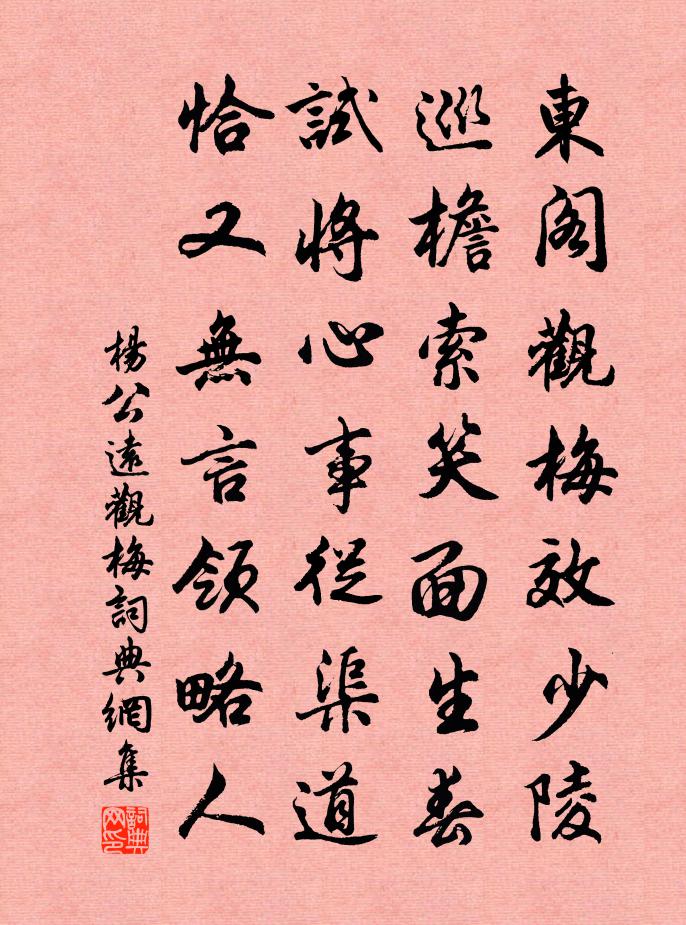 東閣觀梅效少陵
巡檐索笑面生春
試將心事從渠道
恰又無言領略人
楊公遠觀梅詞典網集
詞典網印